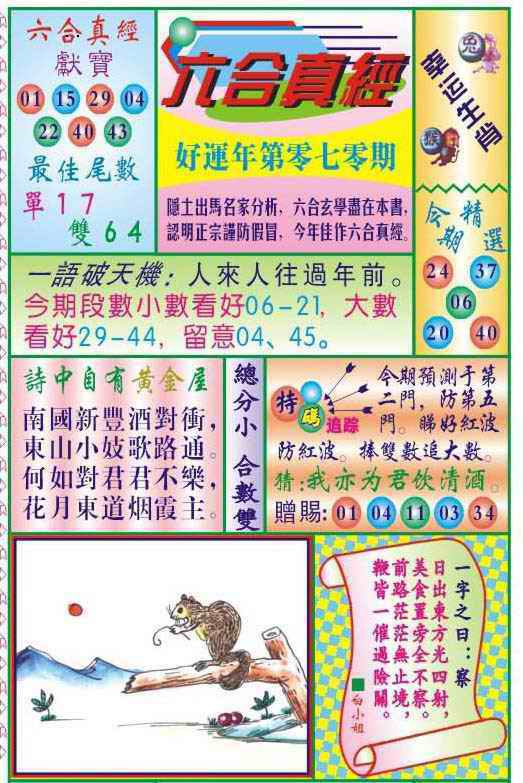 六合真經
獻寶
01 15 29 04
22 40 43
最佳尾數
單17
雙64
六合真經
好運年第零七零期
隱士出馬名家分析，六合玄學盡在本書，
認明正宗謹防假冒，今年佳作六合真經。
兔
猴
今期精選
24 37
06
20 40
一語破天機：人來人往過年前。
今期段數小數看好06-21，大數
看好29-44，留意04、45。
詩中自有黃金屋
南國新豐酒對衝，
東山小妓歌路通。
何如對君君不樂，
花月東道烟霞主。
總分小 合數雙
特碼追踪
今期預測于第
二門，防第五
門。睇好紅波
防紅波。捧雙數追大數。
猜：我亦为君饮清酒。
贈賜：01 04 11 03 34
一字之曰：察
日出東方光四射，
美食置旁全不察。
前路茫茫無止境，
鞭皆一催過險關。
白小姐